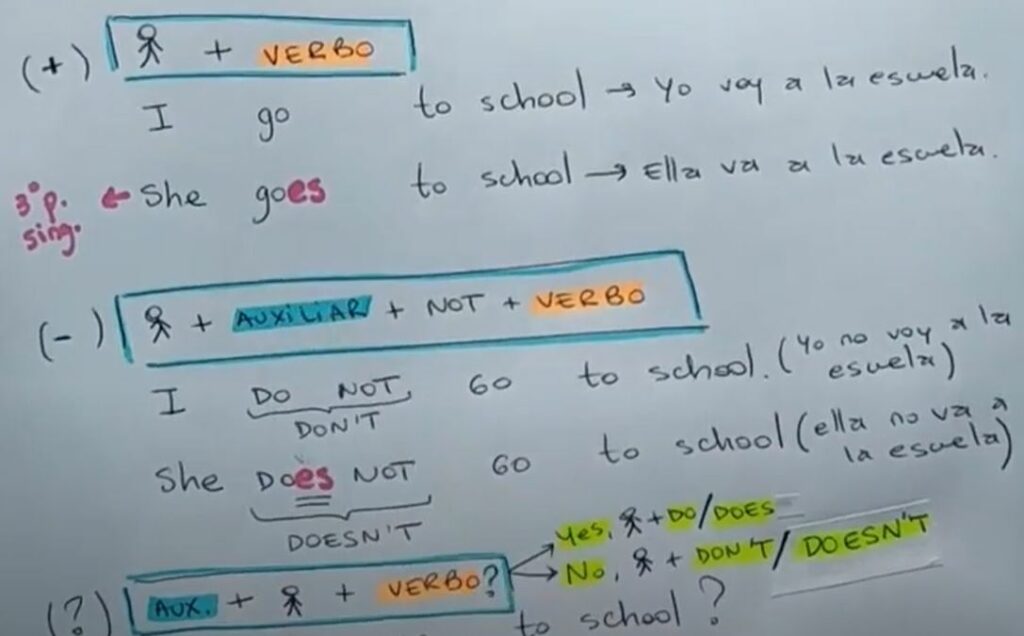 (+) + VERBO
I go to school → Yo voy a la escuela.
3°p. sing. ← She goes to school → Ella va a la escuela.
(-) + AUXILIAR + NOT + VERBO
I DO NOT GO to school. (Yo no voy a la escuela)
DON'T
She DOES NOT GO to school (ella no va a la escuela)
DOESN'T
Yes, + DO/DOES
No, + DON'T/DOESN'T
(?) AUX. + + VERBO?
to school?